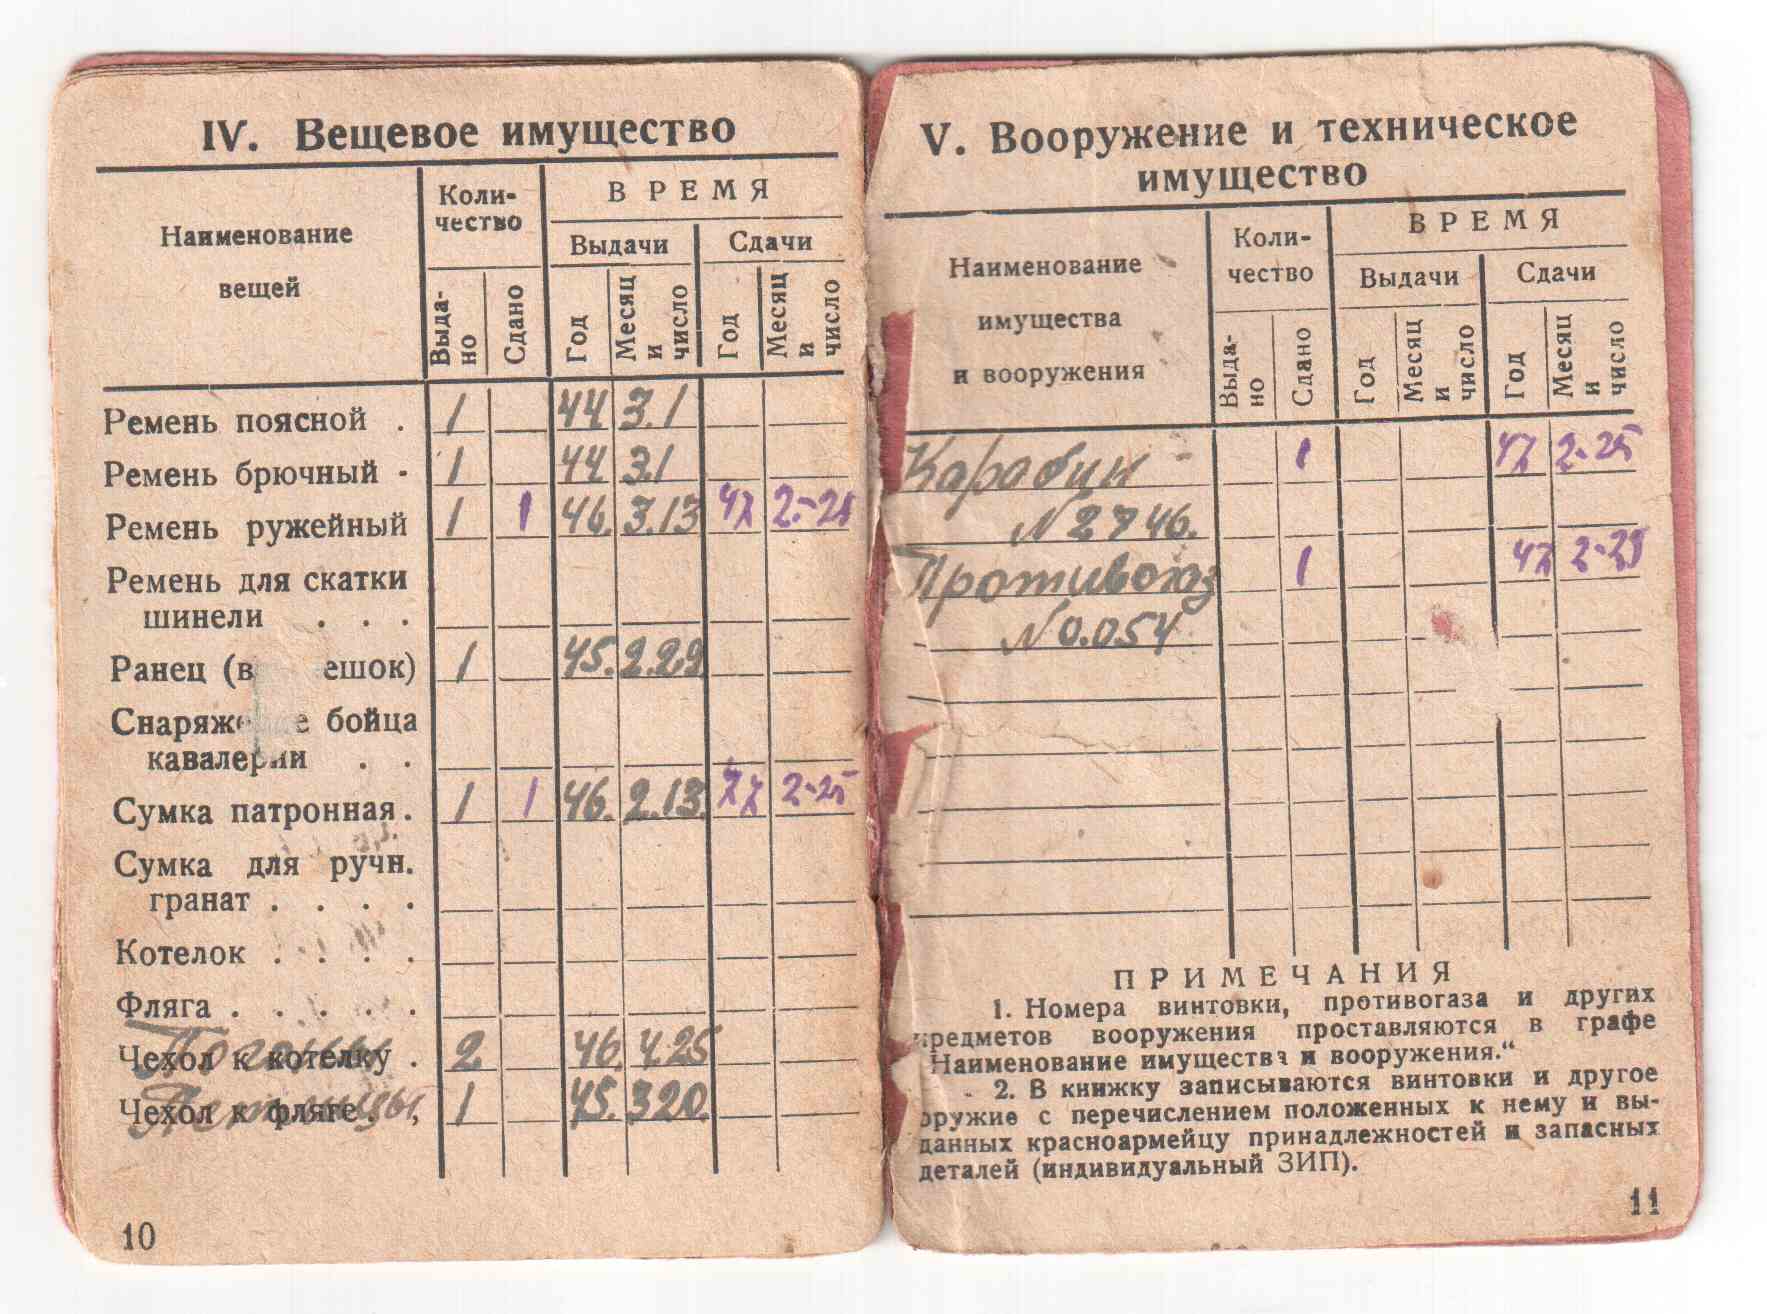 IV. Вещевое имущество
Наименование вещей
Коли-
чество
ВРЕМЯ
Выдачи
Сдачи
Выда-
но
Сдано
Год
Месяц
и
число
Год
Месяц
и
число
Ремень поясной . 1 44 3.1
Ремень брючный - 1 44 3.1
Ремень ружейный 1 1 46. 3.13 47 2-25
Ремень для скатки
шинели . . .
Ранец (в ешок) 1 45. 2.22
Снаряж е бойца
кавалерии . .
Сумка патронная . 1 1 46. 2.13. 47 2-25
Сумка для ручн.
гранат . . . .
Котелок . . . .
Фляга . . . . .
Чехол к котелку . Погоны 2 46. 4.25
Чехол к фляге . , Петлицы 1 45. 3 20.
10
V. Вооружение и техническое
имущество
Наименование
имущества
и вооружения
Коли-
чество
ВРЕМЯ
Выдачи
Сдачи
Выда-
но
Сдано
Год
Месяц
и
число
Год
Месяц
и
число
Карабин - 1 47 2-25
№ 2746.
Противогаз 1 47 2-25
№ 0.054
ПРИМЕЧАНИЯ
1. Номера винтовки, противогаза и других
предметов вооружения проставляются в графе
"Наименование имущества и вооружения.“
2. В книжку записываются винтовки и другое
оружие с перечислением положенных к нему и вы-
данных красноармейцу принадлежностей и запасных
деталей (индивидуальный ЗИП).
11